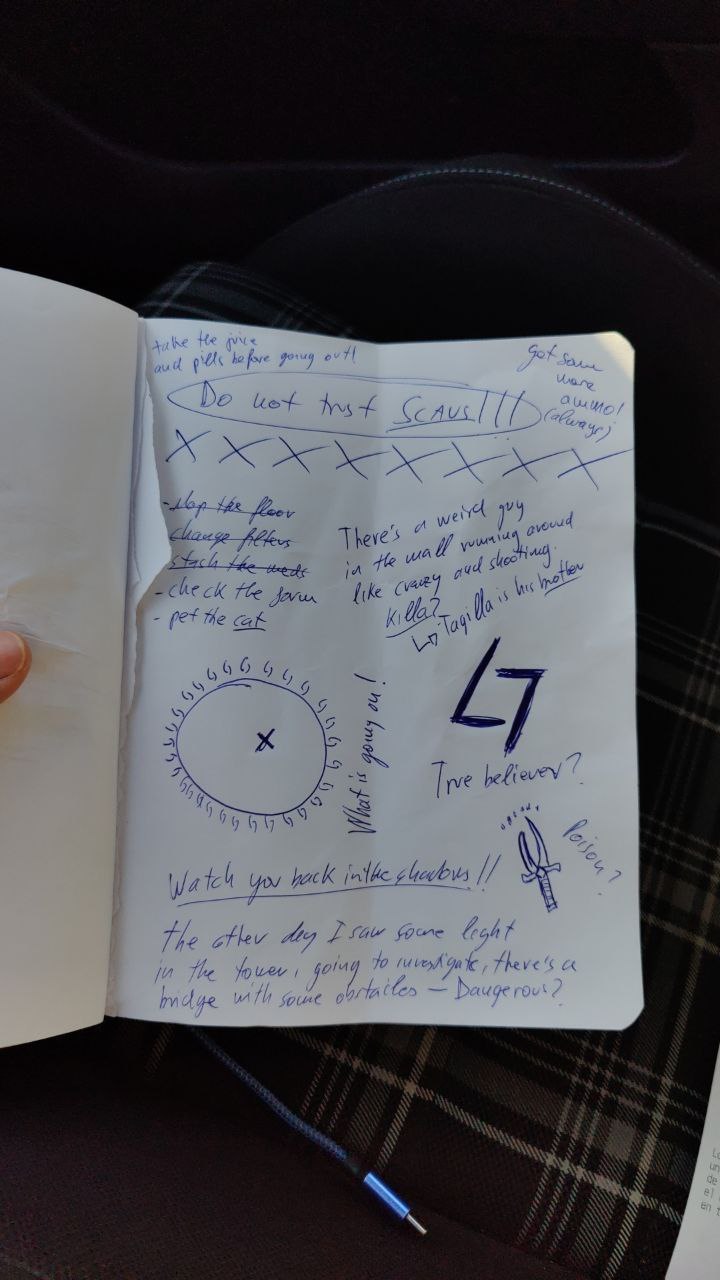 take the juice
and pills before going out!
Get some
more
ammo!
(always)
Do not trust SCAVS!!!
X X X X X X X X
- Mop the floor
change filters
stash the meds
- check the farm
- pet the cat
There's a weird guy
in the mall running around
like crazy and shooting.
Killa?
↳ Tagilla is his brother
X
What is going on!
True believer?
Poison?
Watch you back in the shadows!!
the other day I saw some light
in the tower, going to investigate, there's a
bridge with some obstacles — Dangerous?
un
de
el
en